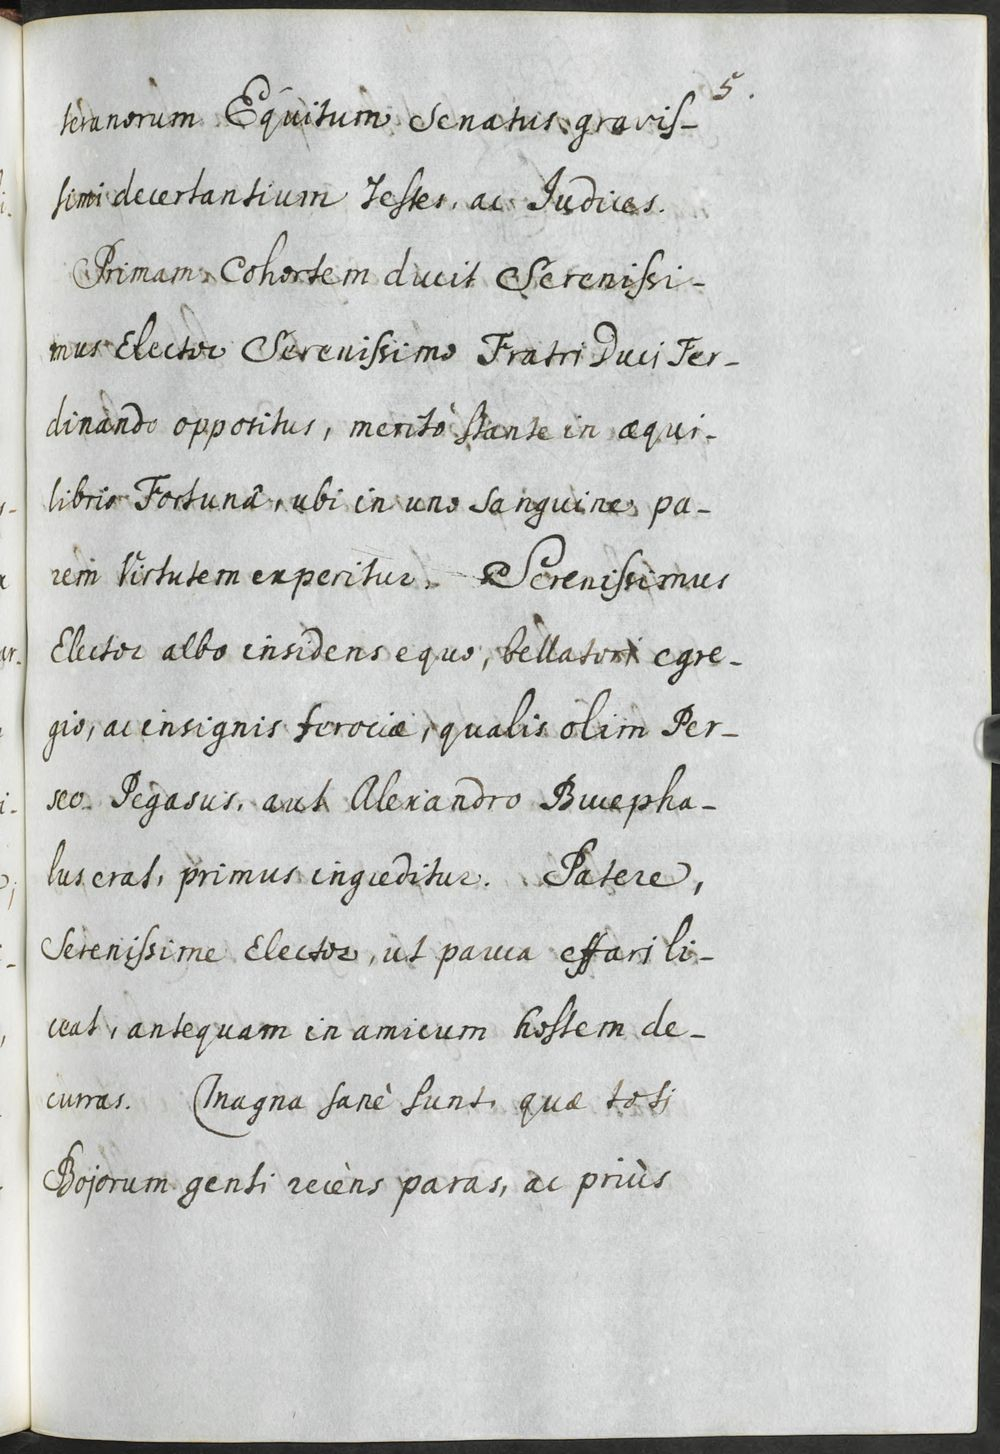 5.
teranorum Equitum Senatus gravis-
simi decertantium Testes, ac Judices.
Primam Cohortem ducit Serenissi-
mus Elector Serenissimo Fratri Duci Fer-
dinando oppositus, meritò stante in æqui-
librio Fortunâ, ubi in uno sanguine pa-
rem Virtutem experitur. Serenissimus
Elector albo insidens equo, bellatori egre-
gio, ac insignis ferociæ, qualis olim Per-
seo Pegasus, aut Alexandro Bucepha-
lus erat, primus ingreditur. Patere,
Serenissime Elector, ut pauca effari li-
ceat, antequam in amicum hostem de-
curras. Magna sanè sunt, quæ toti
Bojorum genti recèns paras, ac priùs